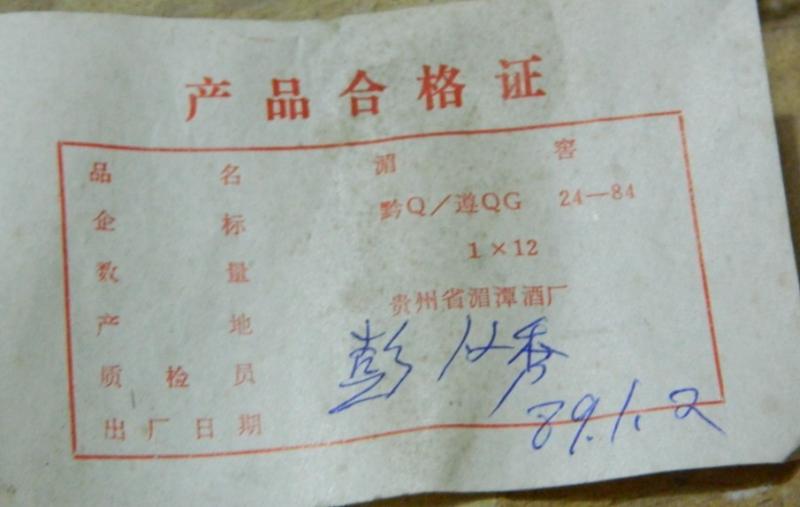 产品合格证
品名 湄窖
企标 黔Q/遵QG 24—84
数量 1×12
产地 贵州省湄潭酒厂
质检员 彭
出厂日期 89.1.2